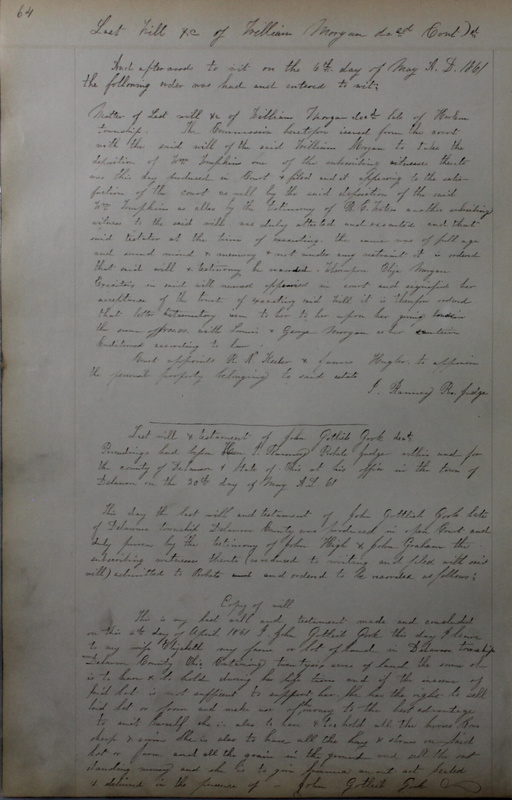 64
Last Will &c of William Morgan decd Cont)d
And afterwards to wit on the 6th day of May A.D. 1861
the following order was had and entered to wit;
Matter of Last will &c of William Morgan decd late of Harlem
township. The Commission heretofore issued from the court
with the said will of the said William Morgan to take the
deposition of Wm Tompkins one of the subscribing witnesses thereto
was this day produced in Court & filed and it appearing to the satis-
faction of the court as well by the said deposition of the said
Wm Tompkins as also by the testimony of R. C. another subscribing
witness to the said will was duly attested and executed and that
said testator at the time of executing the same was of full age
and sound mind & memory & not under any restraint it is ordered
that said will & testimony be recorded. Whereupon Morgan
Executrix in said will named appeared in court and signified her
acceptance of the trust of executing said will it is therefore ordered
that letters testamentary issue to her upon her giving bond in
the sum of with Lewis & George Morgan as her
conditioned according to law
Court appoints R. K. & Hughes to appraise
the personal property belonging to said estate
Pro. Judge
Last will & testament of John Gotleib Gook decd
Proceedings had before Hon. Probate Judge within and for
the county of Delaware & State of Ohio at his office in the town of
Delaware on the 20th day of May A.D. 61
This day the last will and testament of John Gottleib Gook late
of Delaware township Delaware County was produced in open Court and
duly proven by the testimony of John High & John Graham the
subscribing witnesses thereto (reduced to writing and filed with said
will) admitted to Probate and ordered to be recorded as follows;
Copy of will
This is my last will and testament made and concluded
on this 6th day of April 1861 I John Gotleib Gook this day I leave
to my wife Elizabeth my farm or lot of land in Delaware township
Delaware County Ohio Containing acres of land the same
is to have & to hold during her life time and if the income of
said lot is not sufficient to support her she has the right to sell
said lot or farm and make use of the money to the best advantage
to suit herself she is also to have & to hold all the horses
sheep & she is also to have all the hay & on said
lot or farm and all the grain in the ground and all the out
standing money and she is to give
& delivered in the presence of - John Gotleib Gook